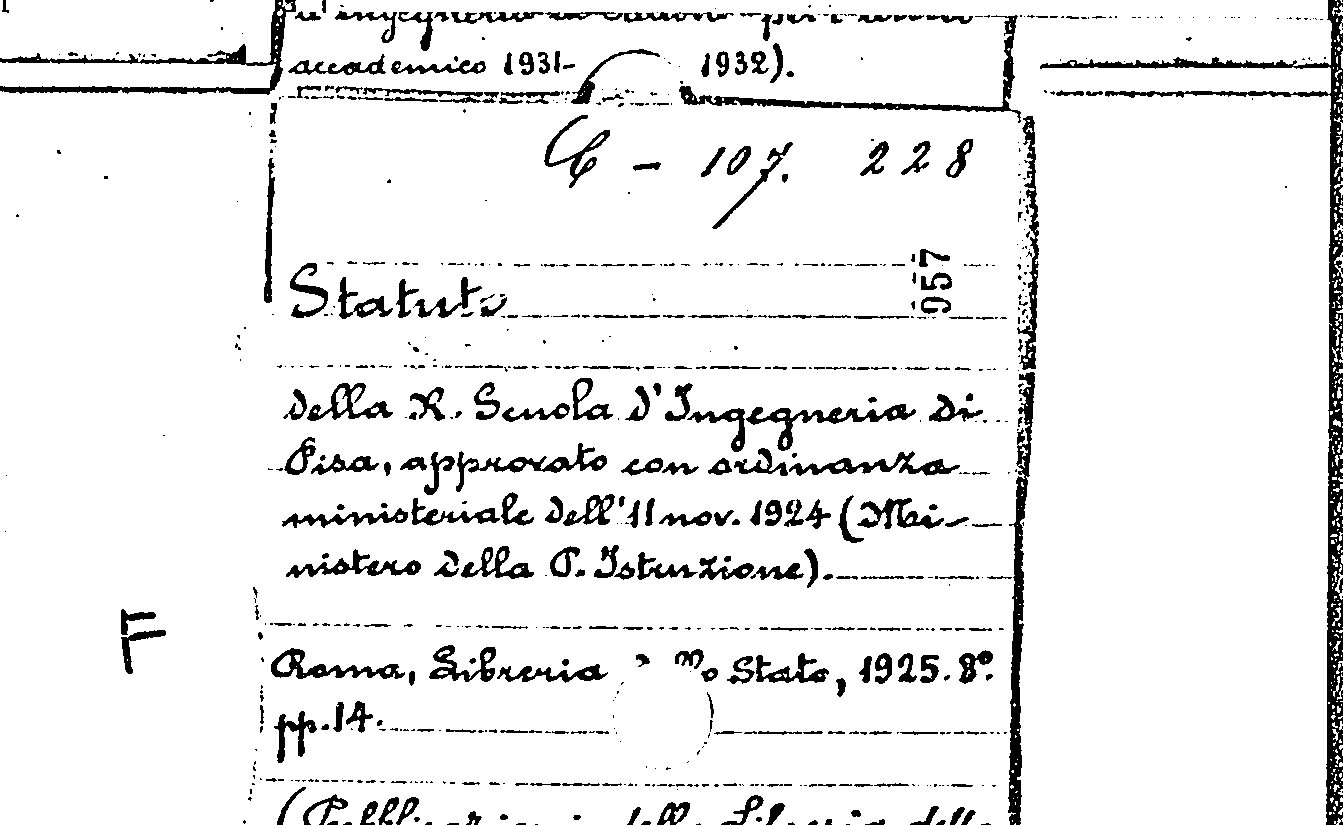 d'Ingegneria
per l'anno
accademico 1931-1932).
C - 107. 228
957
Statuto
della R. Scuola d'Ingegneria di
Pisa, approvato con ordinanza
ministeriale dell'11 nov. 1924 (Mi-
nistero della P. Istruzione).
F
Roma, Libreria Stato, 1925. 8°.
pp. 14.
della Libreria dello